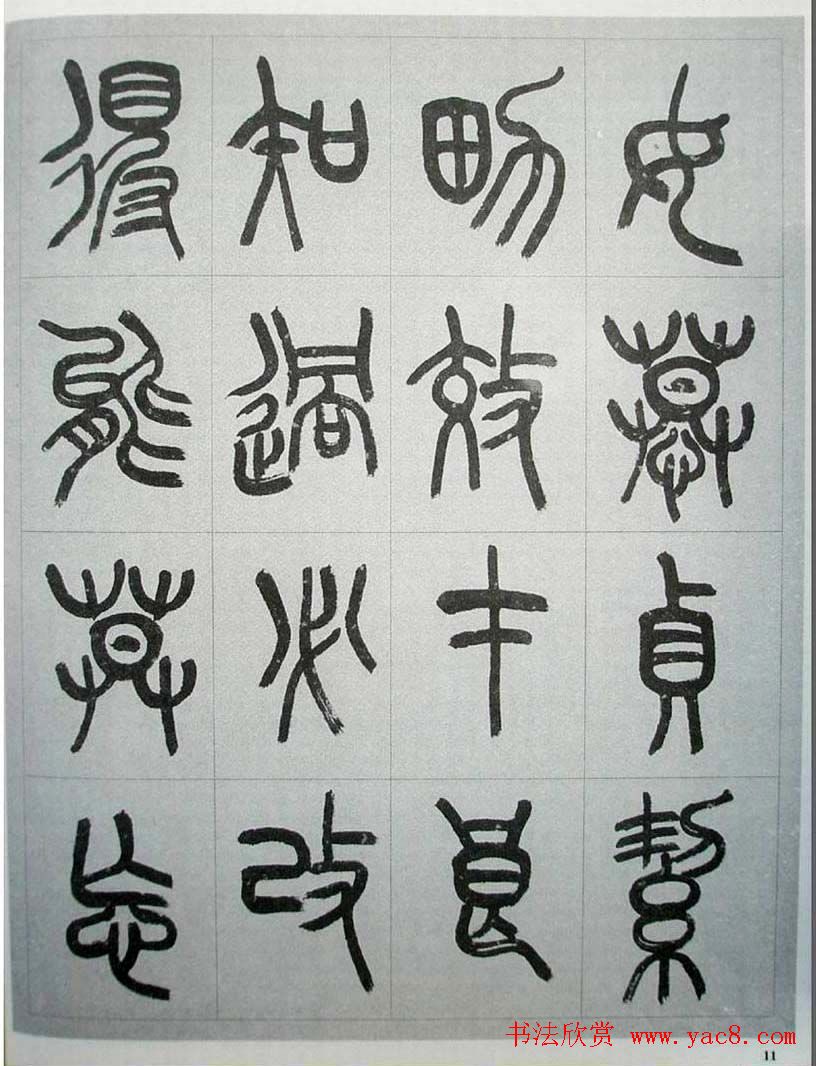 女慕貞絜
男效才良
知過必改
得能莫忘
书法欣赏 www.yac8.com
11